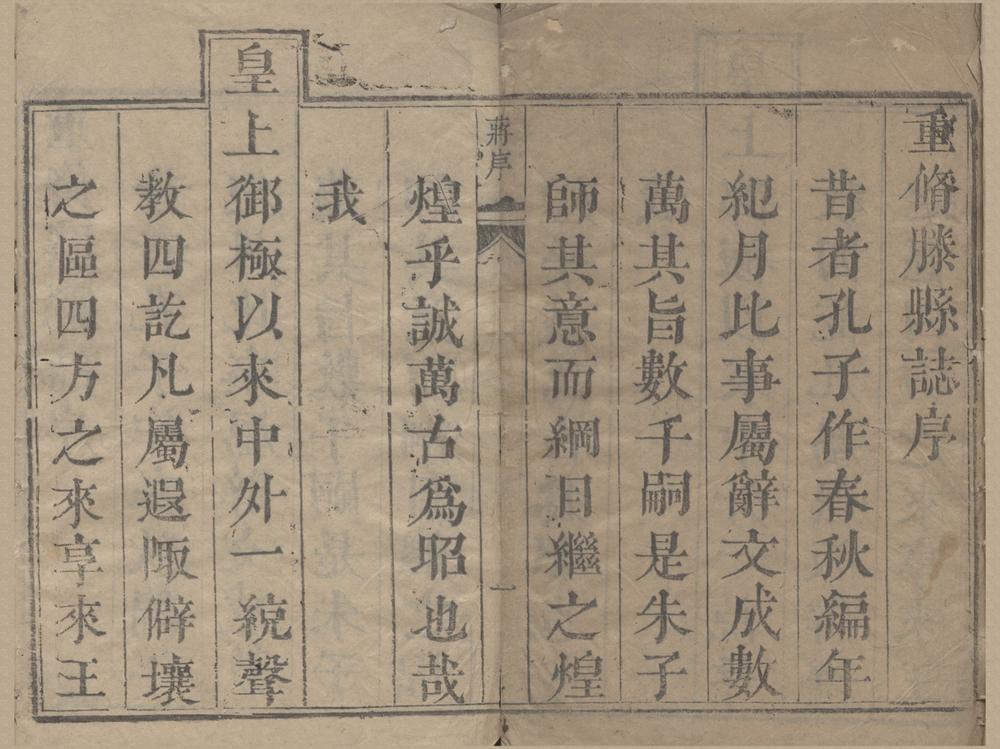 重脩滕縣誌序
昔者孔子作春秋編年
紀月比事屬辭文成數
萬其旨數千嗣是朱子
師其意而綱目繼之煌
蔣序
一
煌乎誠萬古為昭也哉
我
皇上御極以來中外一統聲
教四訖凡屬遐陬僻壤
之區四方之來享來王